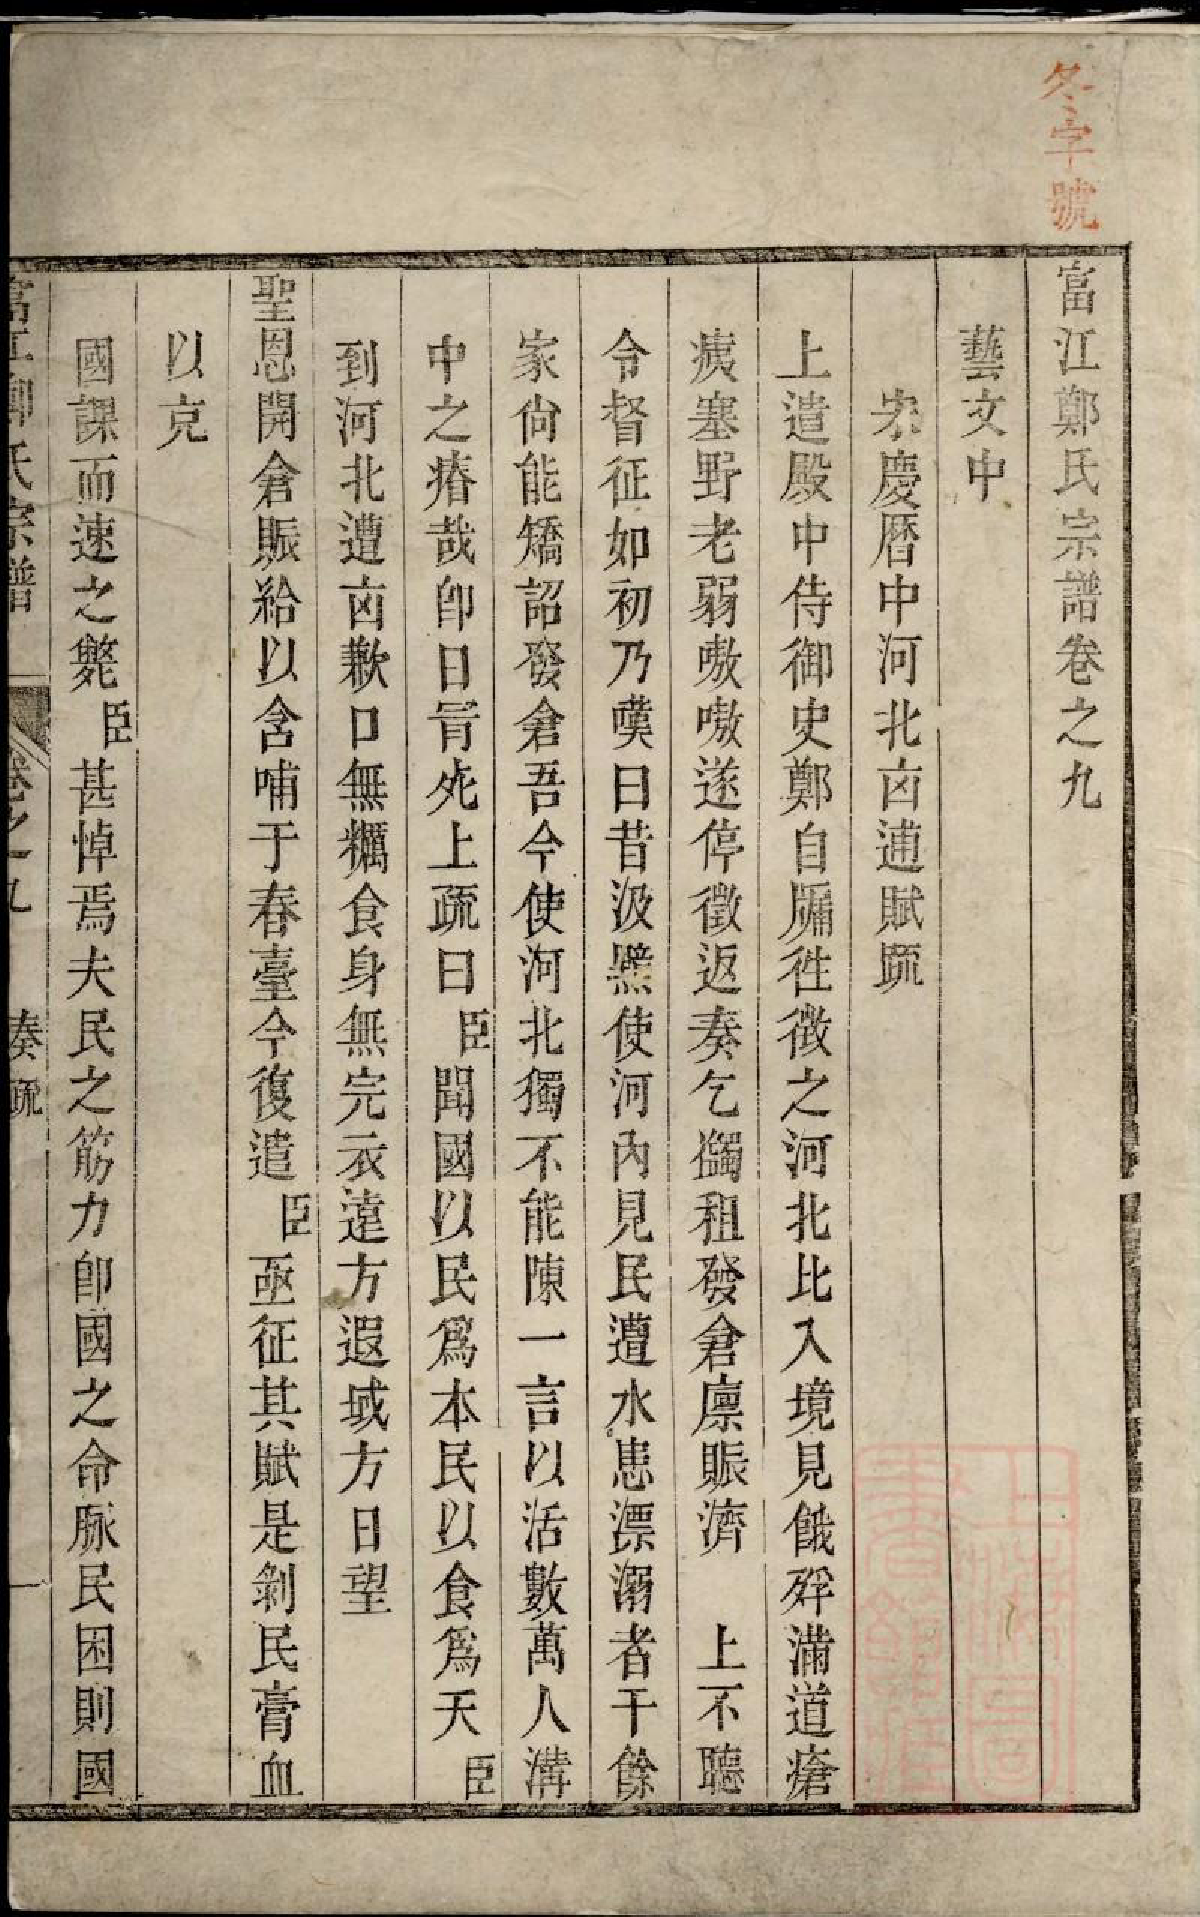 冬字號
富江鄭氏宗譜卷之九
藝文中
宋慶曆中河北凶逋賦疏
上遣殿中侍御史鄭自牖徃徴之河北比入境見餓殍滿道瘡
痍塞野老弱嗷嗷遂停徵返奏乞蠲租發倉廩賑濟　上不聽
令督征如初乃嘆曰昔汲黯使河內見民遭水患漂溺者千餘
家尙能矯詔發倉吾今使河北獨不能陳一言以活數萬人溝
中之瘠哉卽日冐死上疏曰臣聞國以民爲本民以食爲天臣
到河北遭凶歉口無糲食身無完衣遠方遐域方日望
聖恩開倉賑給以含哺于春臺今復遣臣亟征其賦是剝民膏血
以克
國課而速之斃臣甚悼焉夫民之筋力卽國之命脉民困則國
富江鄭氏宗譜　卷之九　奏疏　一